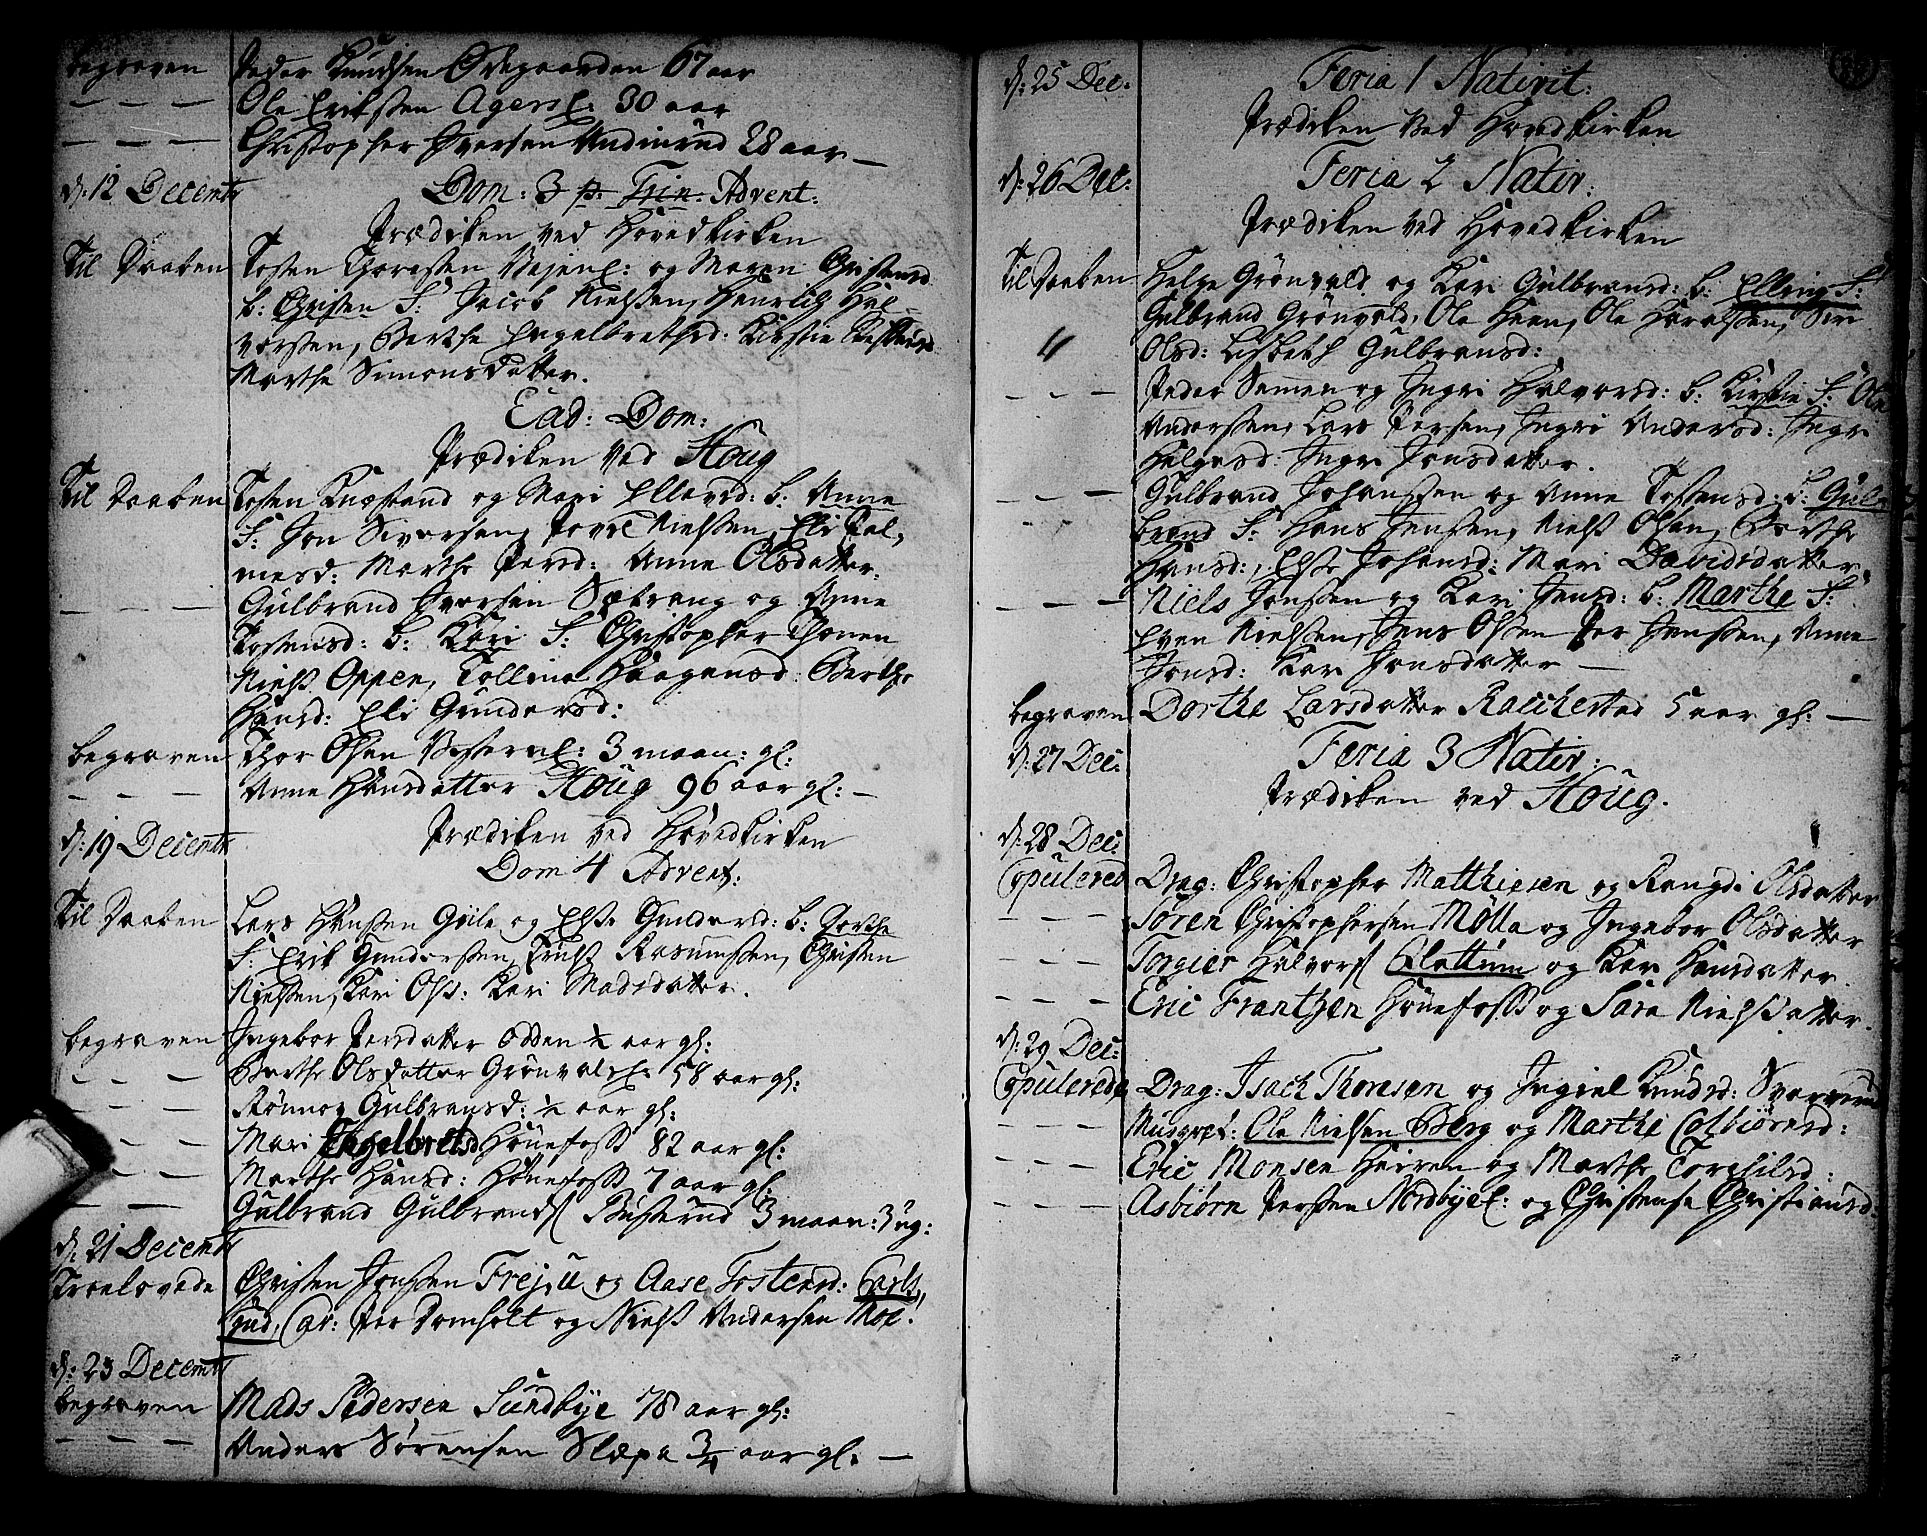 begraven Peder Knudsen Ødegaarden 67 aar
— — — Ole Eriksen Agersl: 30 aar
— — — Christopher Iversen 28 aar —
d: 12 Decembr Dom: 3 p. Trin. Advent:
Prædiken ved Hovedkirken
Til Daaben Tosten Thoresen og Maren Christensd
b: Christen F: Jacob Nielssen, Henrich Hal-
vorsen, Berthe Engelbrethsd: Kirstie
Marthe Simonsdatter.
Ead: Dom:
Prædiken ved Houg
Til Daaben Tosten Knestand og Mari Ellevsd: b: Anne
F: Jon Sivorsen, Povel Nielssen, Eli Pal-
mesd: Marthe Persd: Anne Olsdatter.
— — — Gulbrand Iversen Setrang og Anne
Tostensd: b: Kari F: Christopher Thonen
Niels Oppen, Tollina Haagensd: Berthe
Hansd: Eli Gundersd:
begraven Thor Olsen 3 maan: gl:
— — — Anne Hansdatter Houg 96 aar gl: —
d: 19 Decembr Prædiken ved Hovedkirken
Dom 4 Advent:
Til Daaben Lars Hanssen Gile og Else Gundersd: b: Dorthe
F: Erik Gundersen, Knud Rasmussen, Christen
Nielssen, Kari Olsd: Kari Madsdatter.
begraven Ingebor Persdatter Odden ½ aar gl:
— — — Berthe Olsdatter Grønvold 58 aar gl:
— — — Rønnog Gulbransd: ½ aar gl:
— — — Mari Engelbretsd Hønefoss 82 aar gl:
— — — Marthe Hansd: Hønefoss 7 aar gl:
— — — Gulbrand Gulbrands Busterud 3 maan: 3 ug:
d: 21 Decembr
Troelovede Christen Jonssen Frejsu og Aase Tostensd: Carls
gud, Cav: Per Domholt og Niels Andersen Moe!
d: 23 Decembr
begraven Mads Pedersen Sundbye 78 aar gl:
— — — Anders Sørensen Slæpa 3/4 aar gl: —
d: 25 Dec: Feria 1 Nativit:
Prædiken ved Hovedkirken
d: 26 Dec: Feria 2 Nativ:
Prædiken ved Hovedkirken
Til Daaben Helge Grønvold og Kari Gulbransd: b: Elling F:
Gulbrand Grønvold, Ole Heen, Ole Haralssen, Siri
Olsd: Lisbeth Gulbransd:
— — — Peder Semmen og Ingri Halvorsd: b: Kirstie F: Ole
Anderssen, Lars Persen, Ingri Andersd: Ingri
Helgesd: Ingri Jonsdatter.
— — — Gulbrand Johanssen og Anne Tostensd: b: Gul-
brand F: Hans Jenssen, Niels Olsen, Berthe
Hansd:, Else Johansd: Mari Davidsdatter.
— — — Niels Jonssen og Kari Jensd: b: Marthe F:
Even Nielssen, Jens Olssen Per Jenssen, Anne
Jonsd: Kari Jonsdatter —
begraven Dorthe Larsdatter Rallerstad 5 aar gl: —
d: 27 Dec: Feria 3 Nativ:
Prædiken ved Houg.
d: 28 Dec:
Copulered Drag: Christopher Matthiesen og Rangdi Olsdatter
— — — Søren Christophersen Mølla og Ingebor Olsdatter
— — — Torgier Halvors Blattum og Kari Hansdatter.
— — — Eric Frantzen Hønefoss og Sara Nielsdatter.
d: 29 Dec:
Copulerede Drag: Isach Thomsen og Ingiel Knudsd:
— — — Musqvet: Ole Nielsen Berg og Marthe Colbiørnsd:
— — — Eric Monsen Heiren og Marthe Torchilsd:
— — — Asbiørn Perssen Nordbye: og Christense Christiansd: